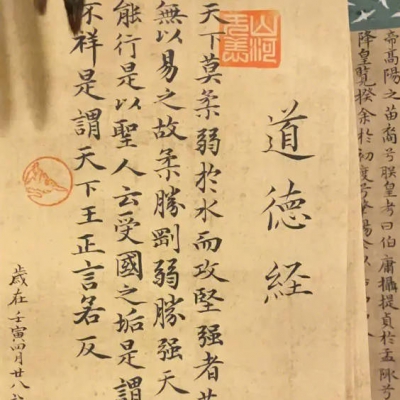 帝高陽之苗裔兮朕皇考曰伯庸攝提貞於孟陬兮
降皇覽揆余於初度兮
山河
无恙
道德経
天下莫柔弱於水而攻堅强者
無以易之故柔勝剛弱勝强天
能行是以聖人云受國之垢是謂
不祥是謂天下王正言若反
歲在壬寅四月廿八